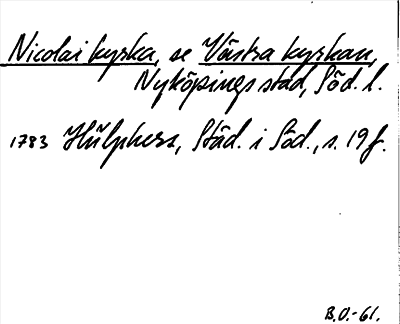 Nicolai kyrka, se Västra kyrkan,
Nyköpings stad, Söd. l.
1783 Hülphers, Städ. i Söd., s. 19 f.
B.O.-61.